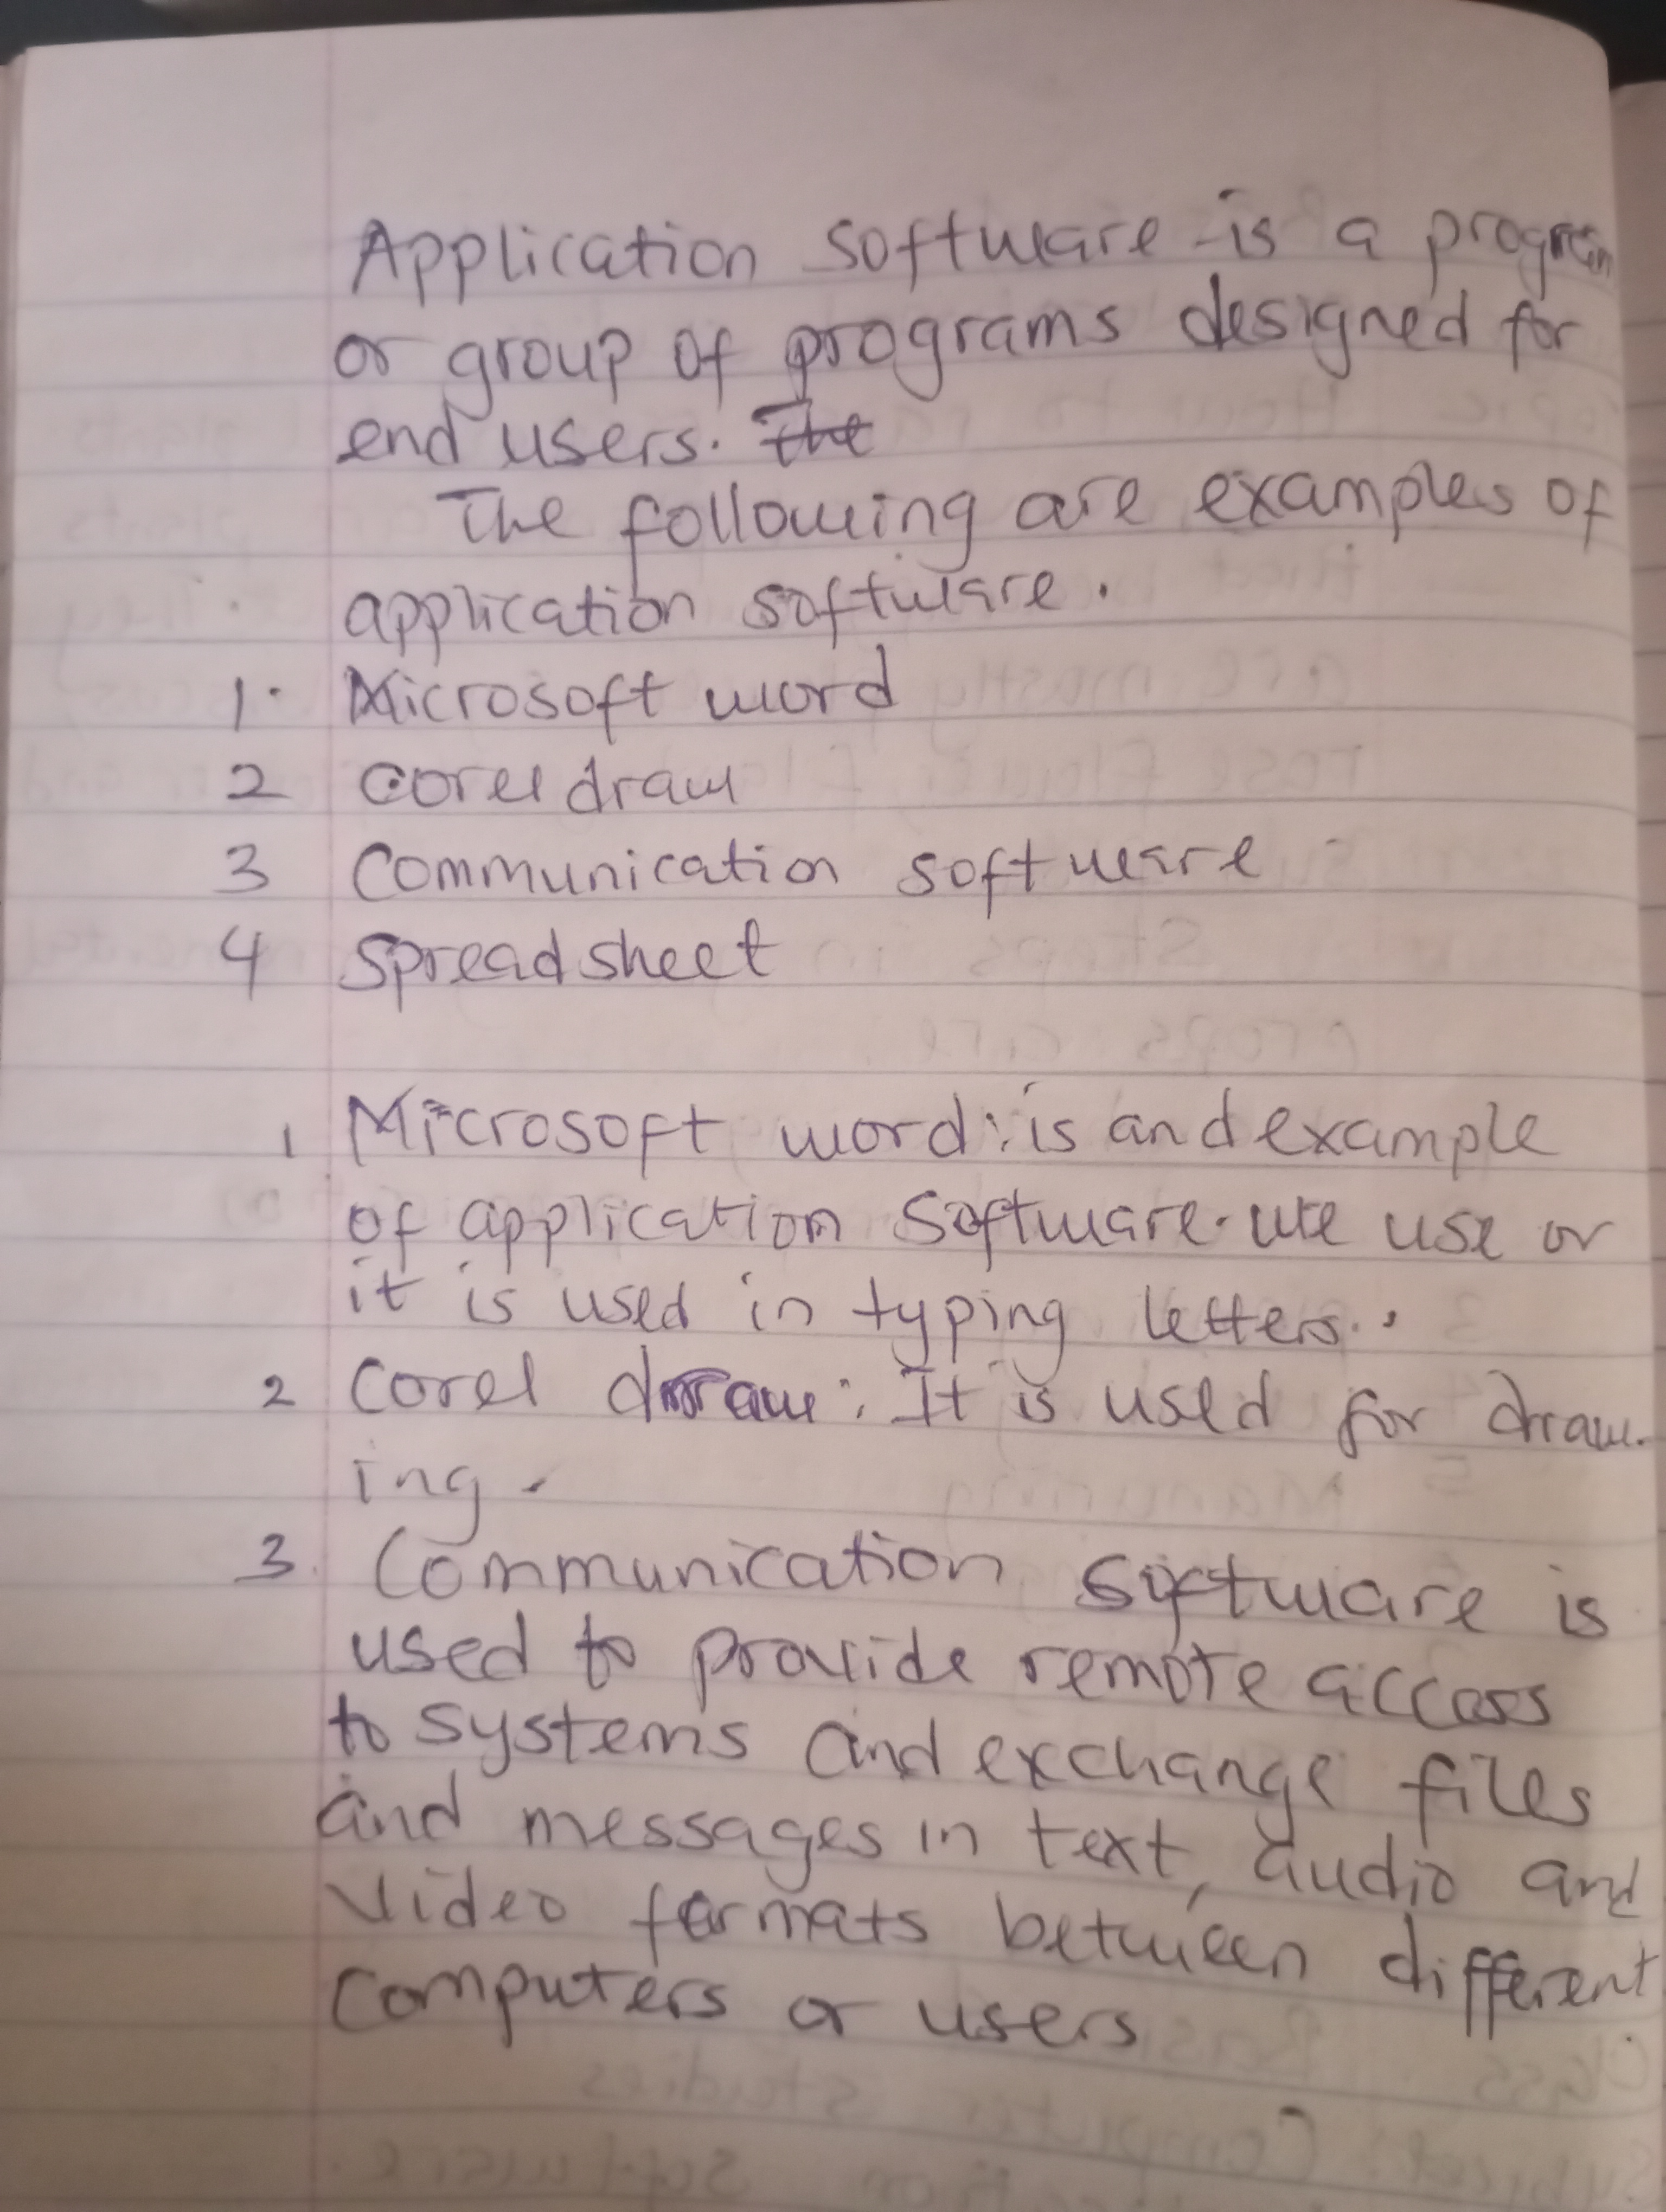 Application software is a program
or group of programs designed for
end users. The
The following are examples of
application software.
1. Microsoft word
2 corel draw
3 Communication software
4 Spreadsheet
1 Microsoft word: is and example
of application software. we use or
it is used in typing letters.
2 Corel draw: It is used for draw-
ing.
3. Communication software is
used to provide remote access
to systems and exchange files
and messages in text, audio and
video formats between different
computers or users